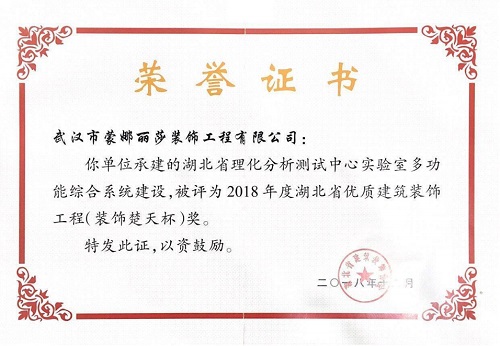 荣誉证书
武汉市蒙娜丽莎装饰工程有限公司：
你单位承建的湖北省理化分析测试中心实验室多功
能综合系统建设，被评为2018年度湖北省优质建筑装饰
工程(装饰楚天杯)奖。
特发此证，以资鼓励。
二〇一八年 月